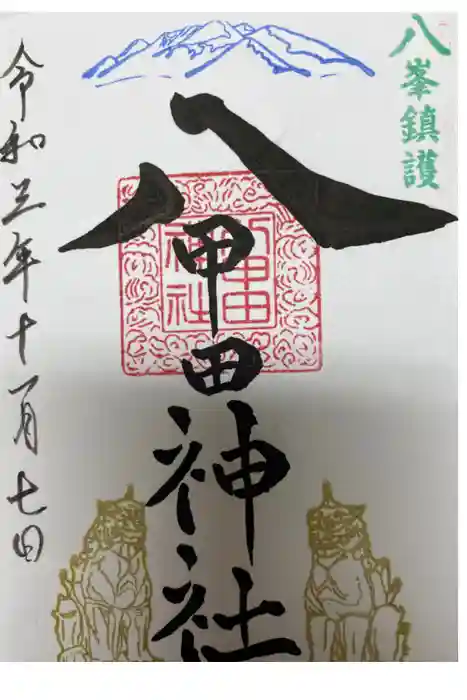 八峯鎮護
八甲田神社
八甲田
神社
令和三年十一月七日